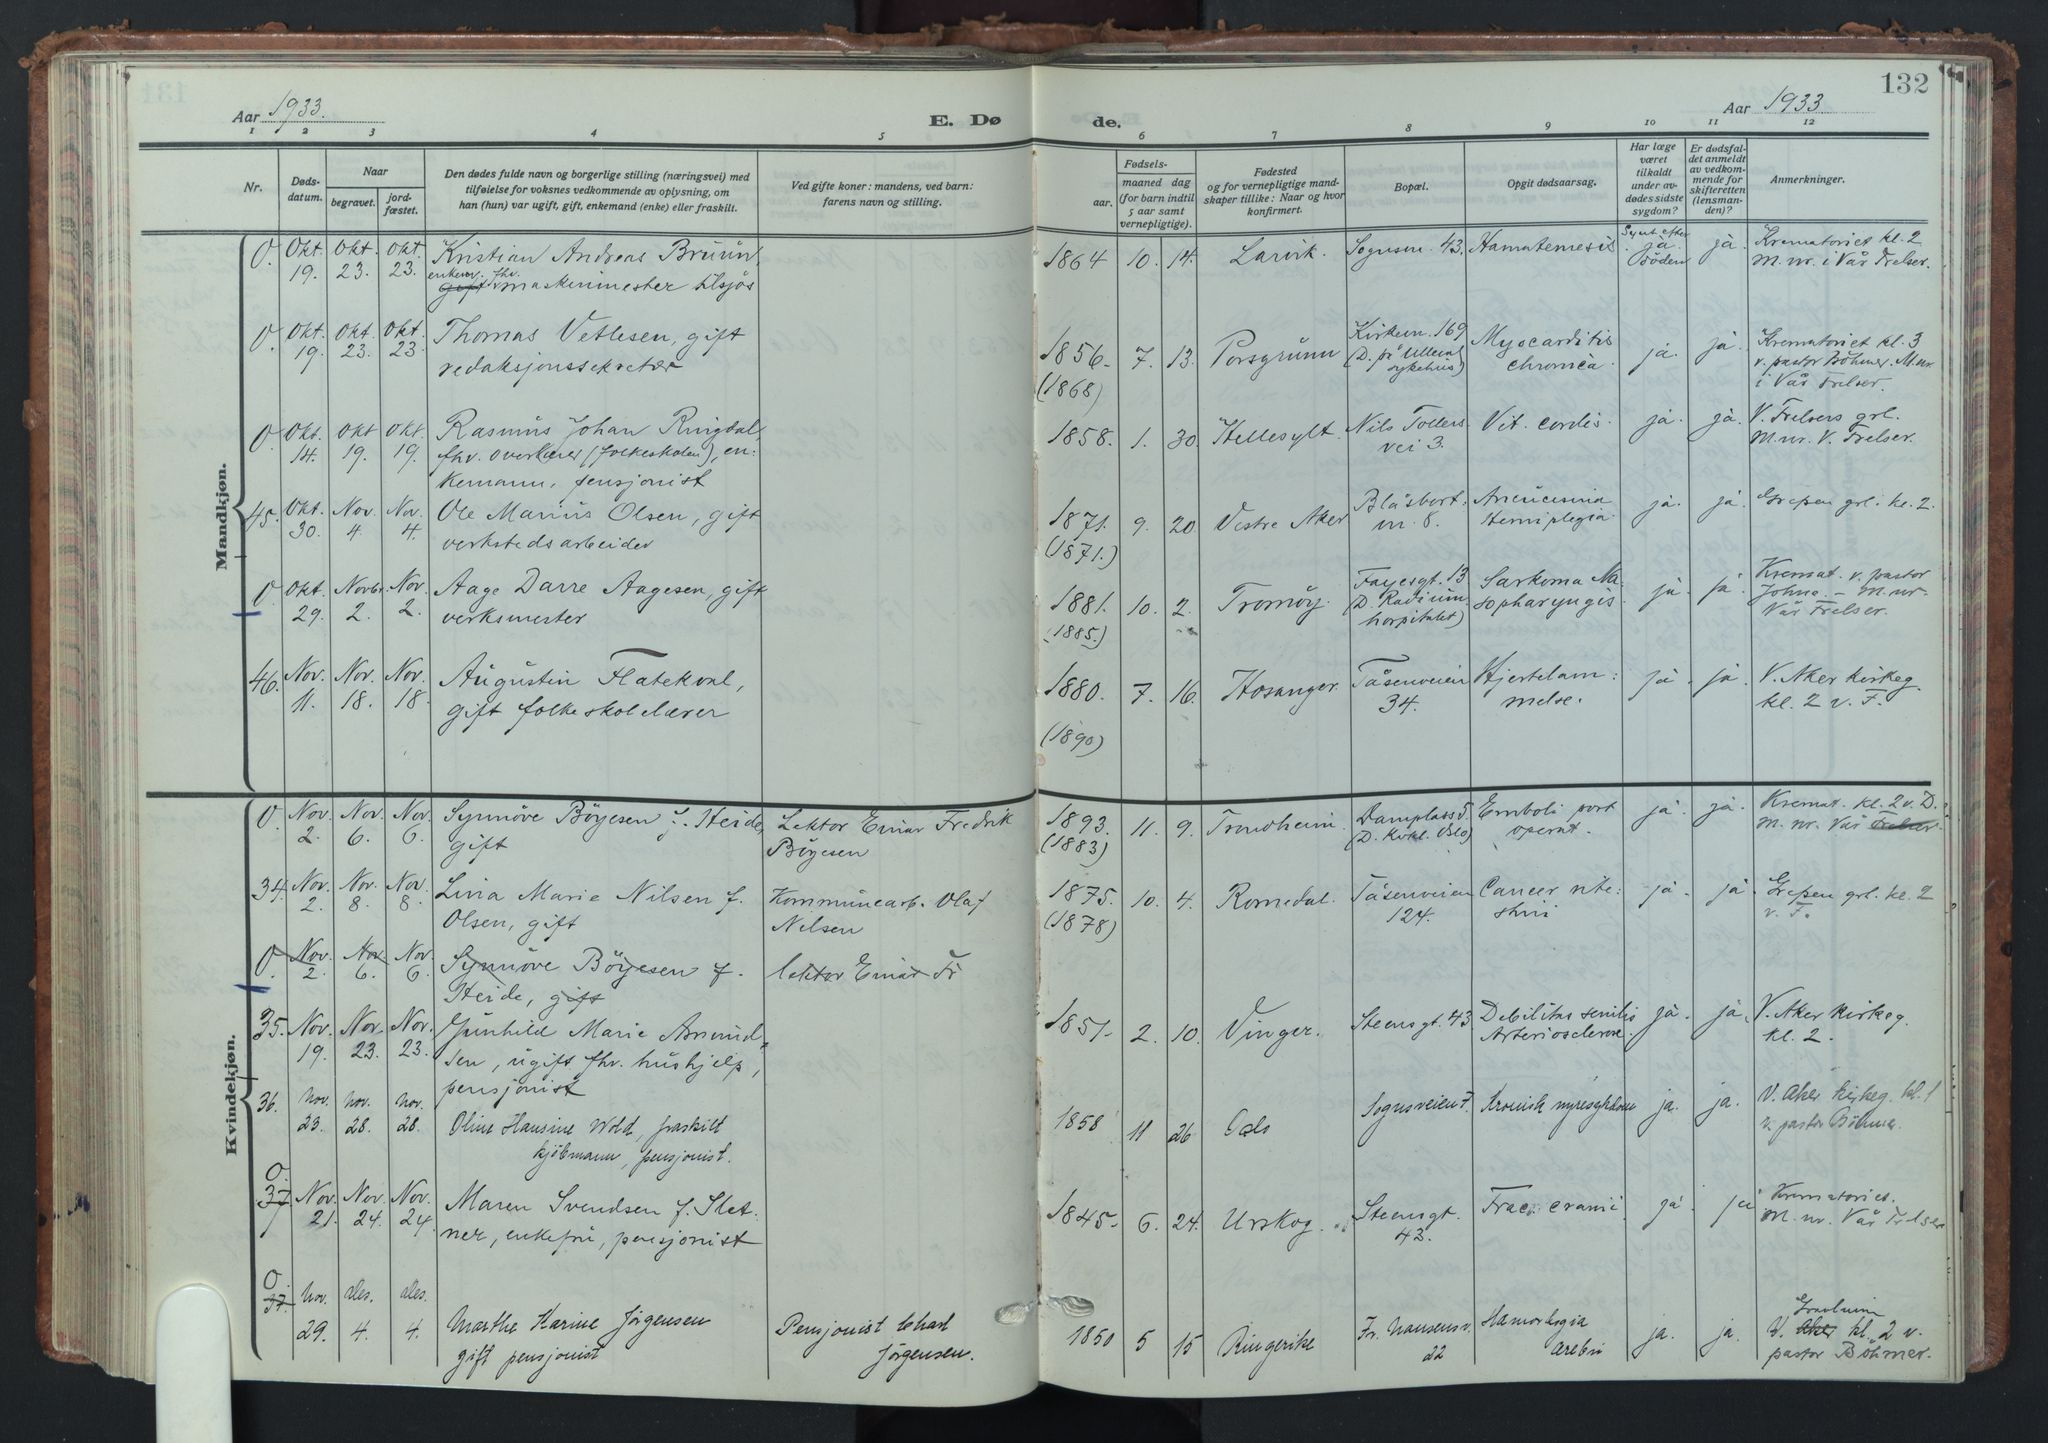 132
Aar 1933.
E. Dø
de.
Aar 1933
1 2 3 4 5 6 7 8 9 10 11 12
Nr.
Døds-
datum.
Naar
begravet.
jord-
fæstet.
Den dødes fulde navn og borgerlige stilling (næringsvei) med
tilføielse for voksnes vedkommende av oplysning, om
han (hun) var ugift, gift, enkemand (enke) eller fraskilt.
Ved gifte koner: mandens, ved barn:
farens navn og stilling.
Fødsels-
aar.
maaned dag
(for barn indtil
5 aar samt
vernepligtige).
Fødested
og for vernepligtige mand-
skaper tillike: Naar og hvor
konfirmert.
Bopæl.
Opgit dødsaarsag.
Har læge
været
tilkaldt
under av-
dødes sidste
sygdom?
Er dødsfal-
det anmeldt
av vedkom-
mende for
skifteretten
(lensman-
den)?
Anmerkninger.
Mandkjøn.
O. Okt. 19. Okt. 23. Okt. 23. Kristian Andreas Bruun,
enkem. fhv.
gift maskinmester tilsjøs
1864 10. 14. Larvik. Sognsv. 43. Hamatemesis
Synt efter
ja
døden
ja. Krematoriet kl. 2
M. nr. i Vår Frelser.
O. Okt. 19. Okt. 23. Okt. 23. Thomas Vetlesen, gift
redaksjonssekretær
1856. 7. 13. Porsgrunn
(1868)
Kirkev. 169
(D. på Ullevål
sykehus)
Myocarditis
chronica.
ja. ja. Krematoriet kl. 3
v. pastor Böhmer. M. nr.
i Vår Frelser.
O Okt. 14. Okt 19. Okt. 19. Rasmus Johan Ringdal,
fhv. overlærer (folkeskolen), en-
kemann, pensjonist
1858. 1. 30. Hellesylt. Nils Tollers
vei 3.
Vit. cordis. ja. ja. V. Frelsers grl.
M. nr. V. Frelser.
45. Okt. 30. Nov. 4. Nov. 4. Ole Marius Olsen, gift
verkstedsarbeider
1871. 9. 20 Vestre Aker
(1871.)
m. 8.
Hemiplegia.
ja. ja. Grefsen grl. kl. 2.
O Okt. 29. Novbr. 2. Nov. 2. Aage Darre Aagesen, gift
verksmester
1881. 10. 2. Tromöy.
(1885.)
Fayesgt. 13
(D. Radium-
hospitalet)
Sarkoma Na-
sopharyngis.
ja. ja. Kremat. v. pastor
– M. nr.
Vår Frelser.
46. Nov. 11. Nov. 18. Nov. 18. Augustin Flatekval,
gift folkeskolelærer
1880. 7. 16. Hosanger.
(1890)
Tåsenveien
34.
Hjertelam-
melse.
ja. ja. V. Aker kirkeg.
kl. 2 v. F.
Kvindekjøn.
O. Nov. 2. Nov. 6. Nov. 6. Synnöve Böyesen f. Heide,
gift
Lektor Einar Fredrik
Böyesen
1893. 11. 9. Trondheim.
(1883)
Damplass 5.
Emboli post
operat.
ja ja. Kremat. kl. 2 v. D.
M. nr. Vår Frelser.
34. Nov. 2. Nov. 8. Nov. 8. Lina Marie Nilsen f.
Olsen, gift
Kommunearb. Olaf
Nilsen
1875. 10. 4. Romedal.
(1878)
Tåsenveien
124.
Cancer
ja. ja Grefsen grl. kl. 2
v. F.
O. Nov. 2. Nov 6. Nov 6. Synnöve Böyesen f.
Heide, gift
lektor Einar Fr
35. Nov. 19. Nov. 23. Nov. 23. Gunhild Marie Asmund-
sen, ugift fhv. hushjelp,
pensjonist
1851. 2. 10. Vinger. Steensgt. 43. Debilitas senilis
Arteriosclerose.
ja. ja. V. Aker kirkeg.
kl. 2.
36. Nov. 23. Nov. 28. Nov. 28. Oline Hansine Wold, fraskilt
kjöbmann, pensjonist.
1858 11 26 Oslo Sognsveien 7. Kronisk nyresykdom ja. ja. V. Aker kirkeg. kl. 1
v. pastor Böhmer.
O.
37 Nov. 21. Nov. 24. Nov. 24. Maren Svendsen f. Slet-
ner, enkefru, pensjonist
1845 6. 24. Urskog. Steensgt.
43.
Frac. cranii ja. ja Krematoriet.
M. nr. Vår Frelser
O.
37. Nov. 29. Des. 4. Des. 4. Marthe Karine Jörgensen
gift pensjonist
Pensjonist Charl
Jörgensen.
1850 5 15 Ringerike Fr. Nansens v.
22
ja. ja.
V. Aker kl. 2 v.
pastor Böhmer.